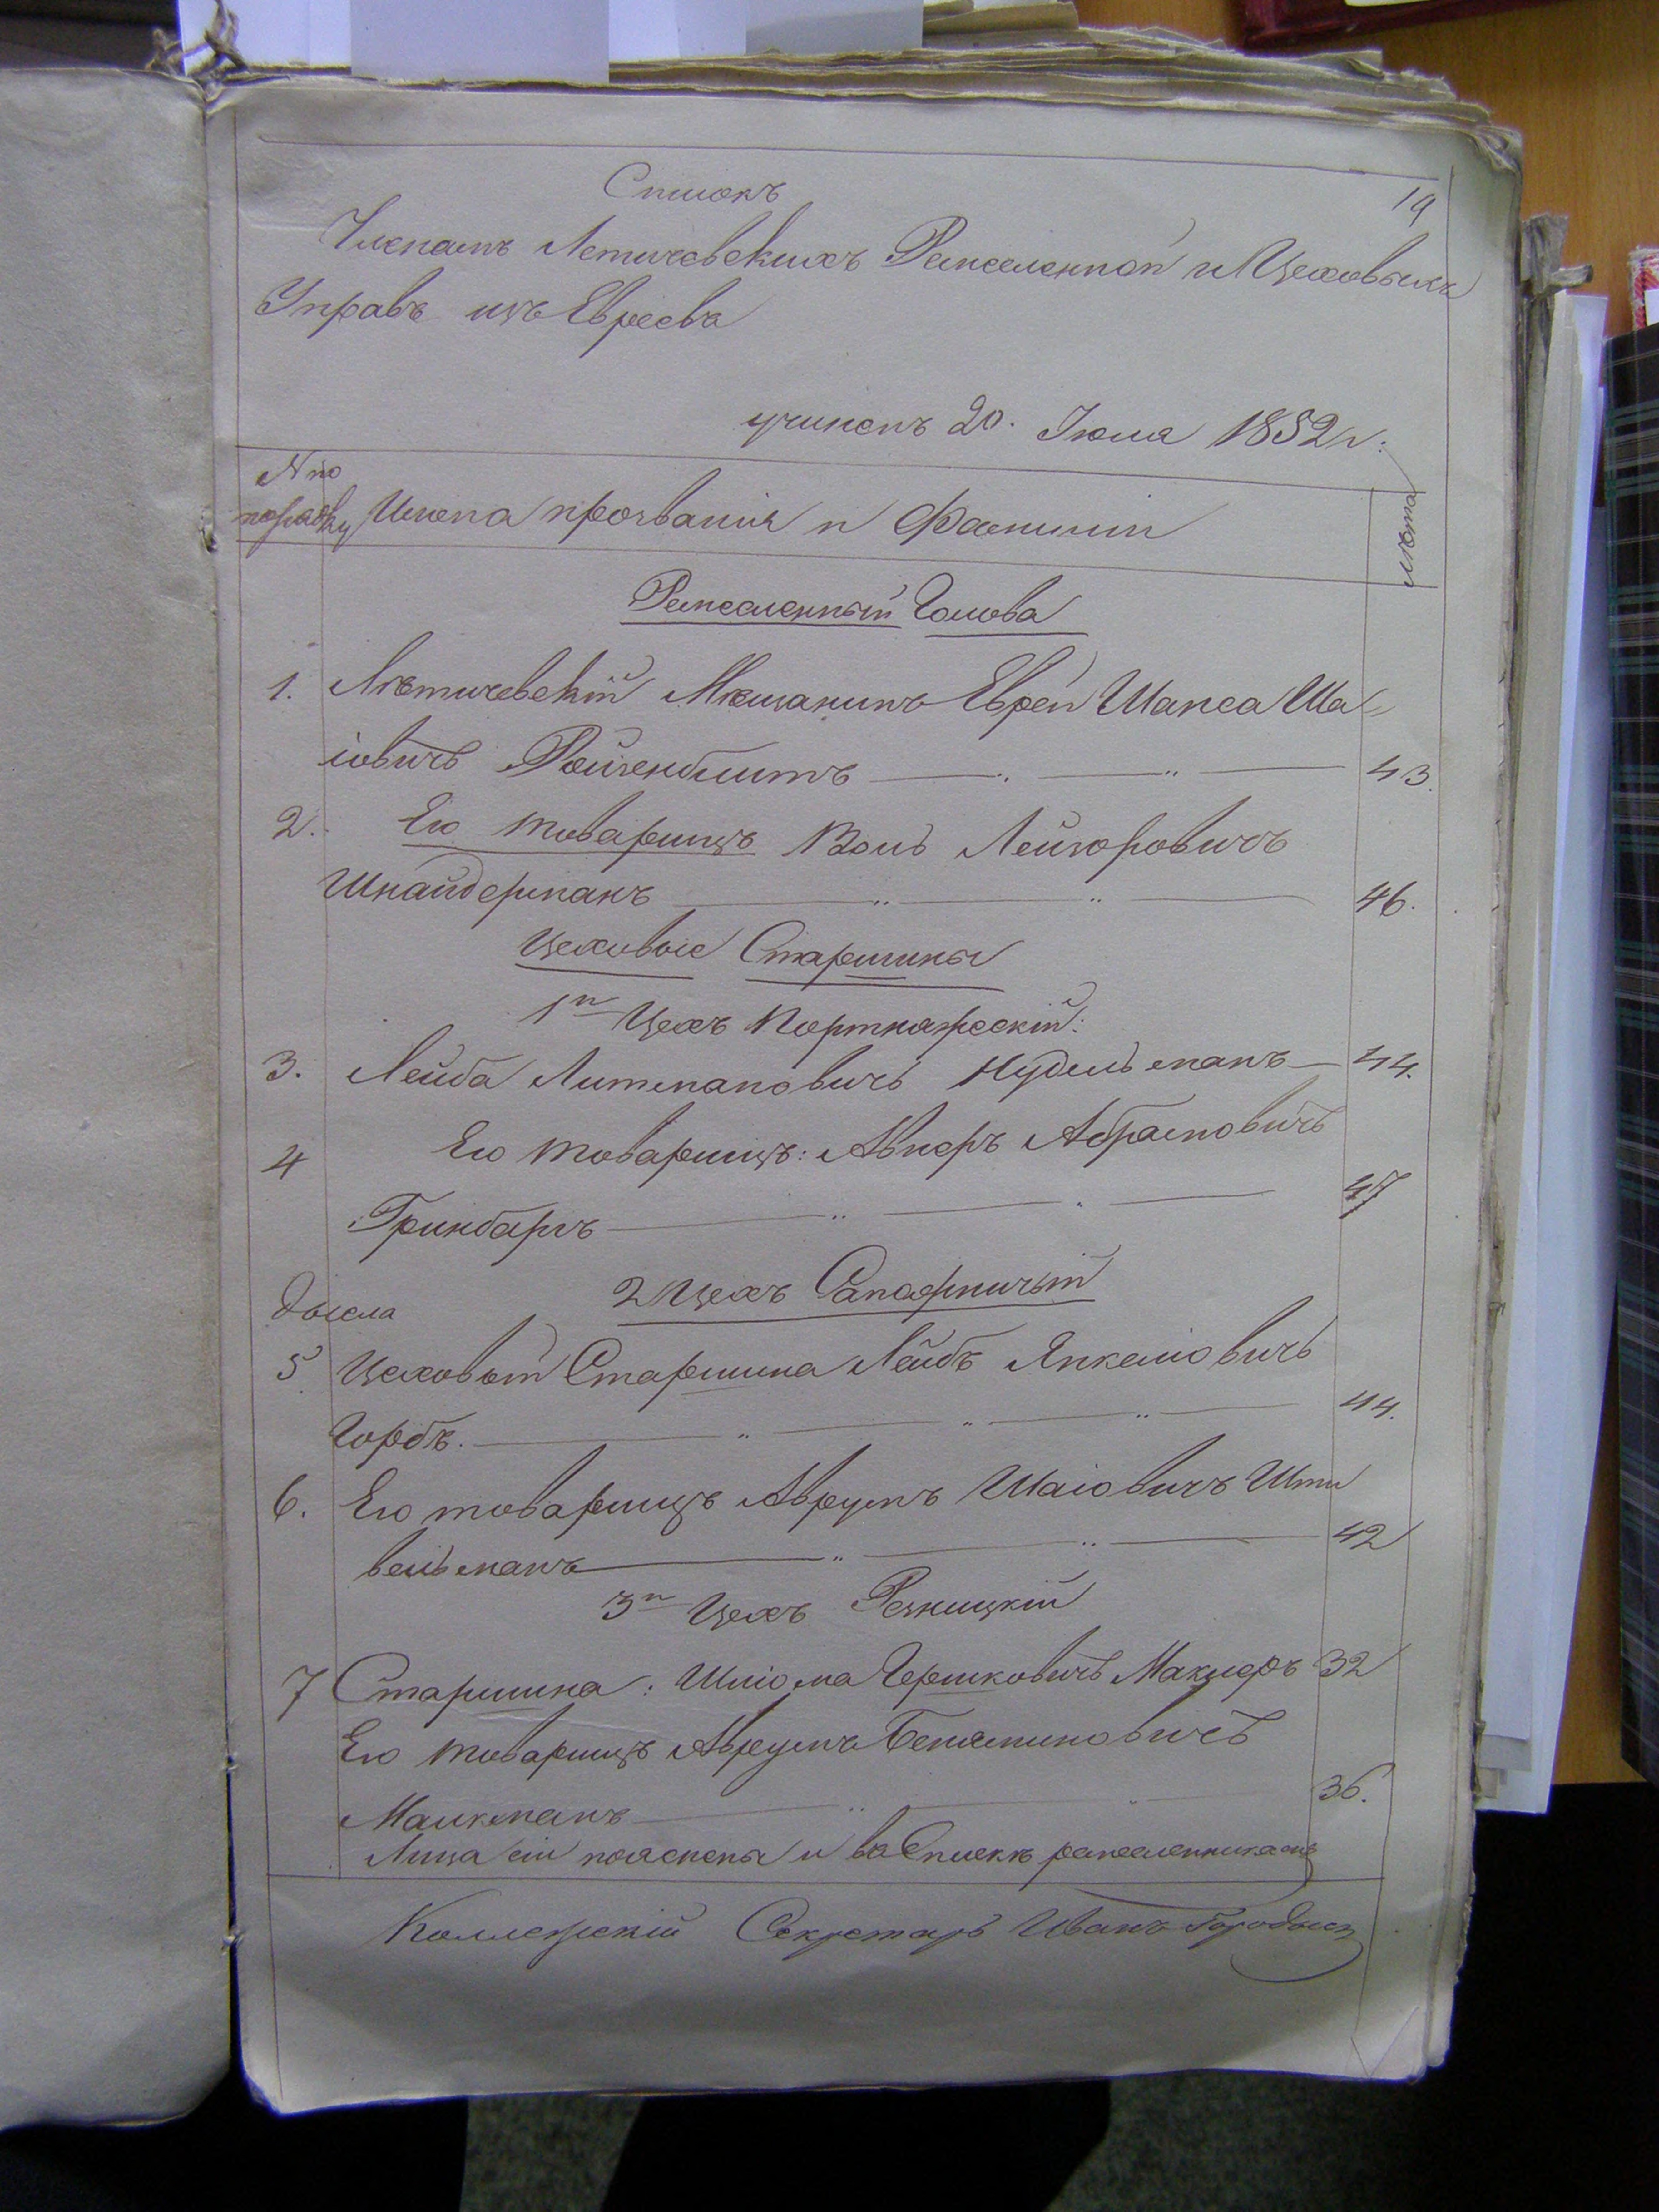 19
Списокъ
Членамъ Летичевскихъ Ремесленной и Цеховыхъ
Управъ изъ Евреевъ
учиненъ 20. Іюля 1852 г:
№ по
порядку
Имена прозванія и Фамиліи
лѣта
Ремесленный Голова
1. Лѣтичевскій Мѣщанинъ Еврей Шапса Ша=
іовичъ Ройзенблитъ 43.
2. Его товарищъ Волъ Лейзоровичъ
Шнайдерманъ 46.
Цеховые Старшины
1й Цехъ Портняжескій:
3. Лейба Литмановичъ Нудельманъ 44.
4 Его товарищъ: Авнеръ Абрамовичъ
Гринбаргъ 47
2 Цехъ Сапожничый
5 Цеховый Старшина Лейбъ Янкеліовичъ
Горбъ. 44.
6. Его товарищъ Аврумъ Шаіовичъ Шти
вельманъ 42
3й Цехъ Резницкій
7 Старшина: Шліома Гершковичъ Маклеръ 32
Его товарищъ Аврумъ Беняминовичъ
Малкманъ 36.
Лица сіи пояснены и въ Спискѣ ремесленникамъ
Коллежскій Секретарь Иванъ